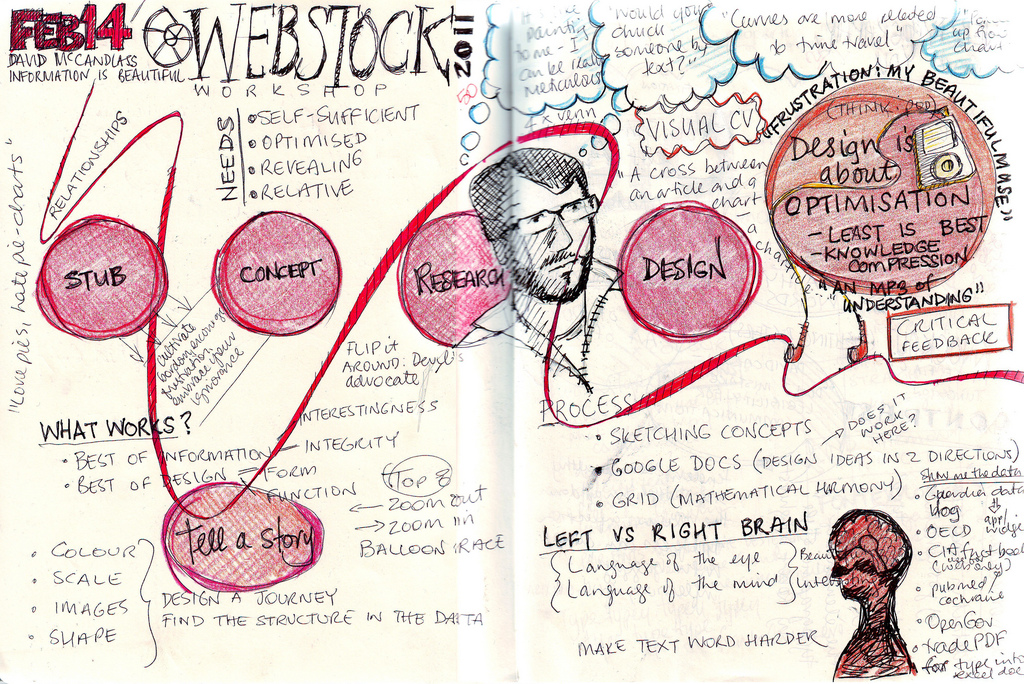 FEB 14
WEBSTOCK
2011
DAVID McCANDLASS
INFORMATION IS BEAUTIFUL
WORKSHOP
NEEDS
• SELF-SUFFICIENT
• OPTIMISED
• REVEALING
• RELATIVE
RELATIONSHIPS
"Love pies, hate pie-charts"
STUB
CONCEPT
RESEARCH
DESIGN
cultivate
bordom, annoyance
frustration
embrace your
ignorance
FLIP it
AROUND: Devyl's
advocate
WHAT WORKS?
• BEST OF INFORMATION
INTERESTINGNESS
INTEGRITY
• BEST OF DESIGN
FORM
FUNCTION
TOP 8
← ZOOM OUT
→ ZOOM IN
BALLOON RACE
tell a story
• COLOUR
• SCALE
• IMAGES
• SHAPE
DESIGN A JOURNEY
FIND THE STRUCTURE IN THE DATA
painting
to me - I
can be really
meticulous"
50
4 x venn
"Would you
chuck
someone by
text?"
"Curries are more related
to time travel"
VISUAL CV
"A cross between
an article and a
chart -
a
"FRUSTRATION: MY BEAUTIFUL MUSE"
(THINK
Design is
about
OPTIMISATION
- LEAST IS BEST
- KNOWLEDGE
COMPRESSION
"AN MP3 of
UNDERSTANDING"
CRITICAL
FEEDBACK
PROCESS
• SKETCHING CONCEPTS
DOES IT
WORK
HERE?
• GOOGLE DOCS (DESIGN IDEAS IN 2 DIRECTIONS)
• GRID (MATHEMATICAL HARMONY)
LEFT VS RIGHT BRAIN
Language of the eye
Language of the mind
MAKE TEXT WORD HARDER
Show me the data
• Guardian data
blog
api/
• OECD widge
• CIA fact book
• pubmed/
cochraine
• OpenGov
• tradePDF
for type into
excel doc